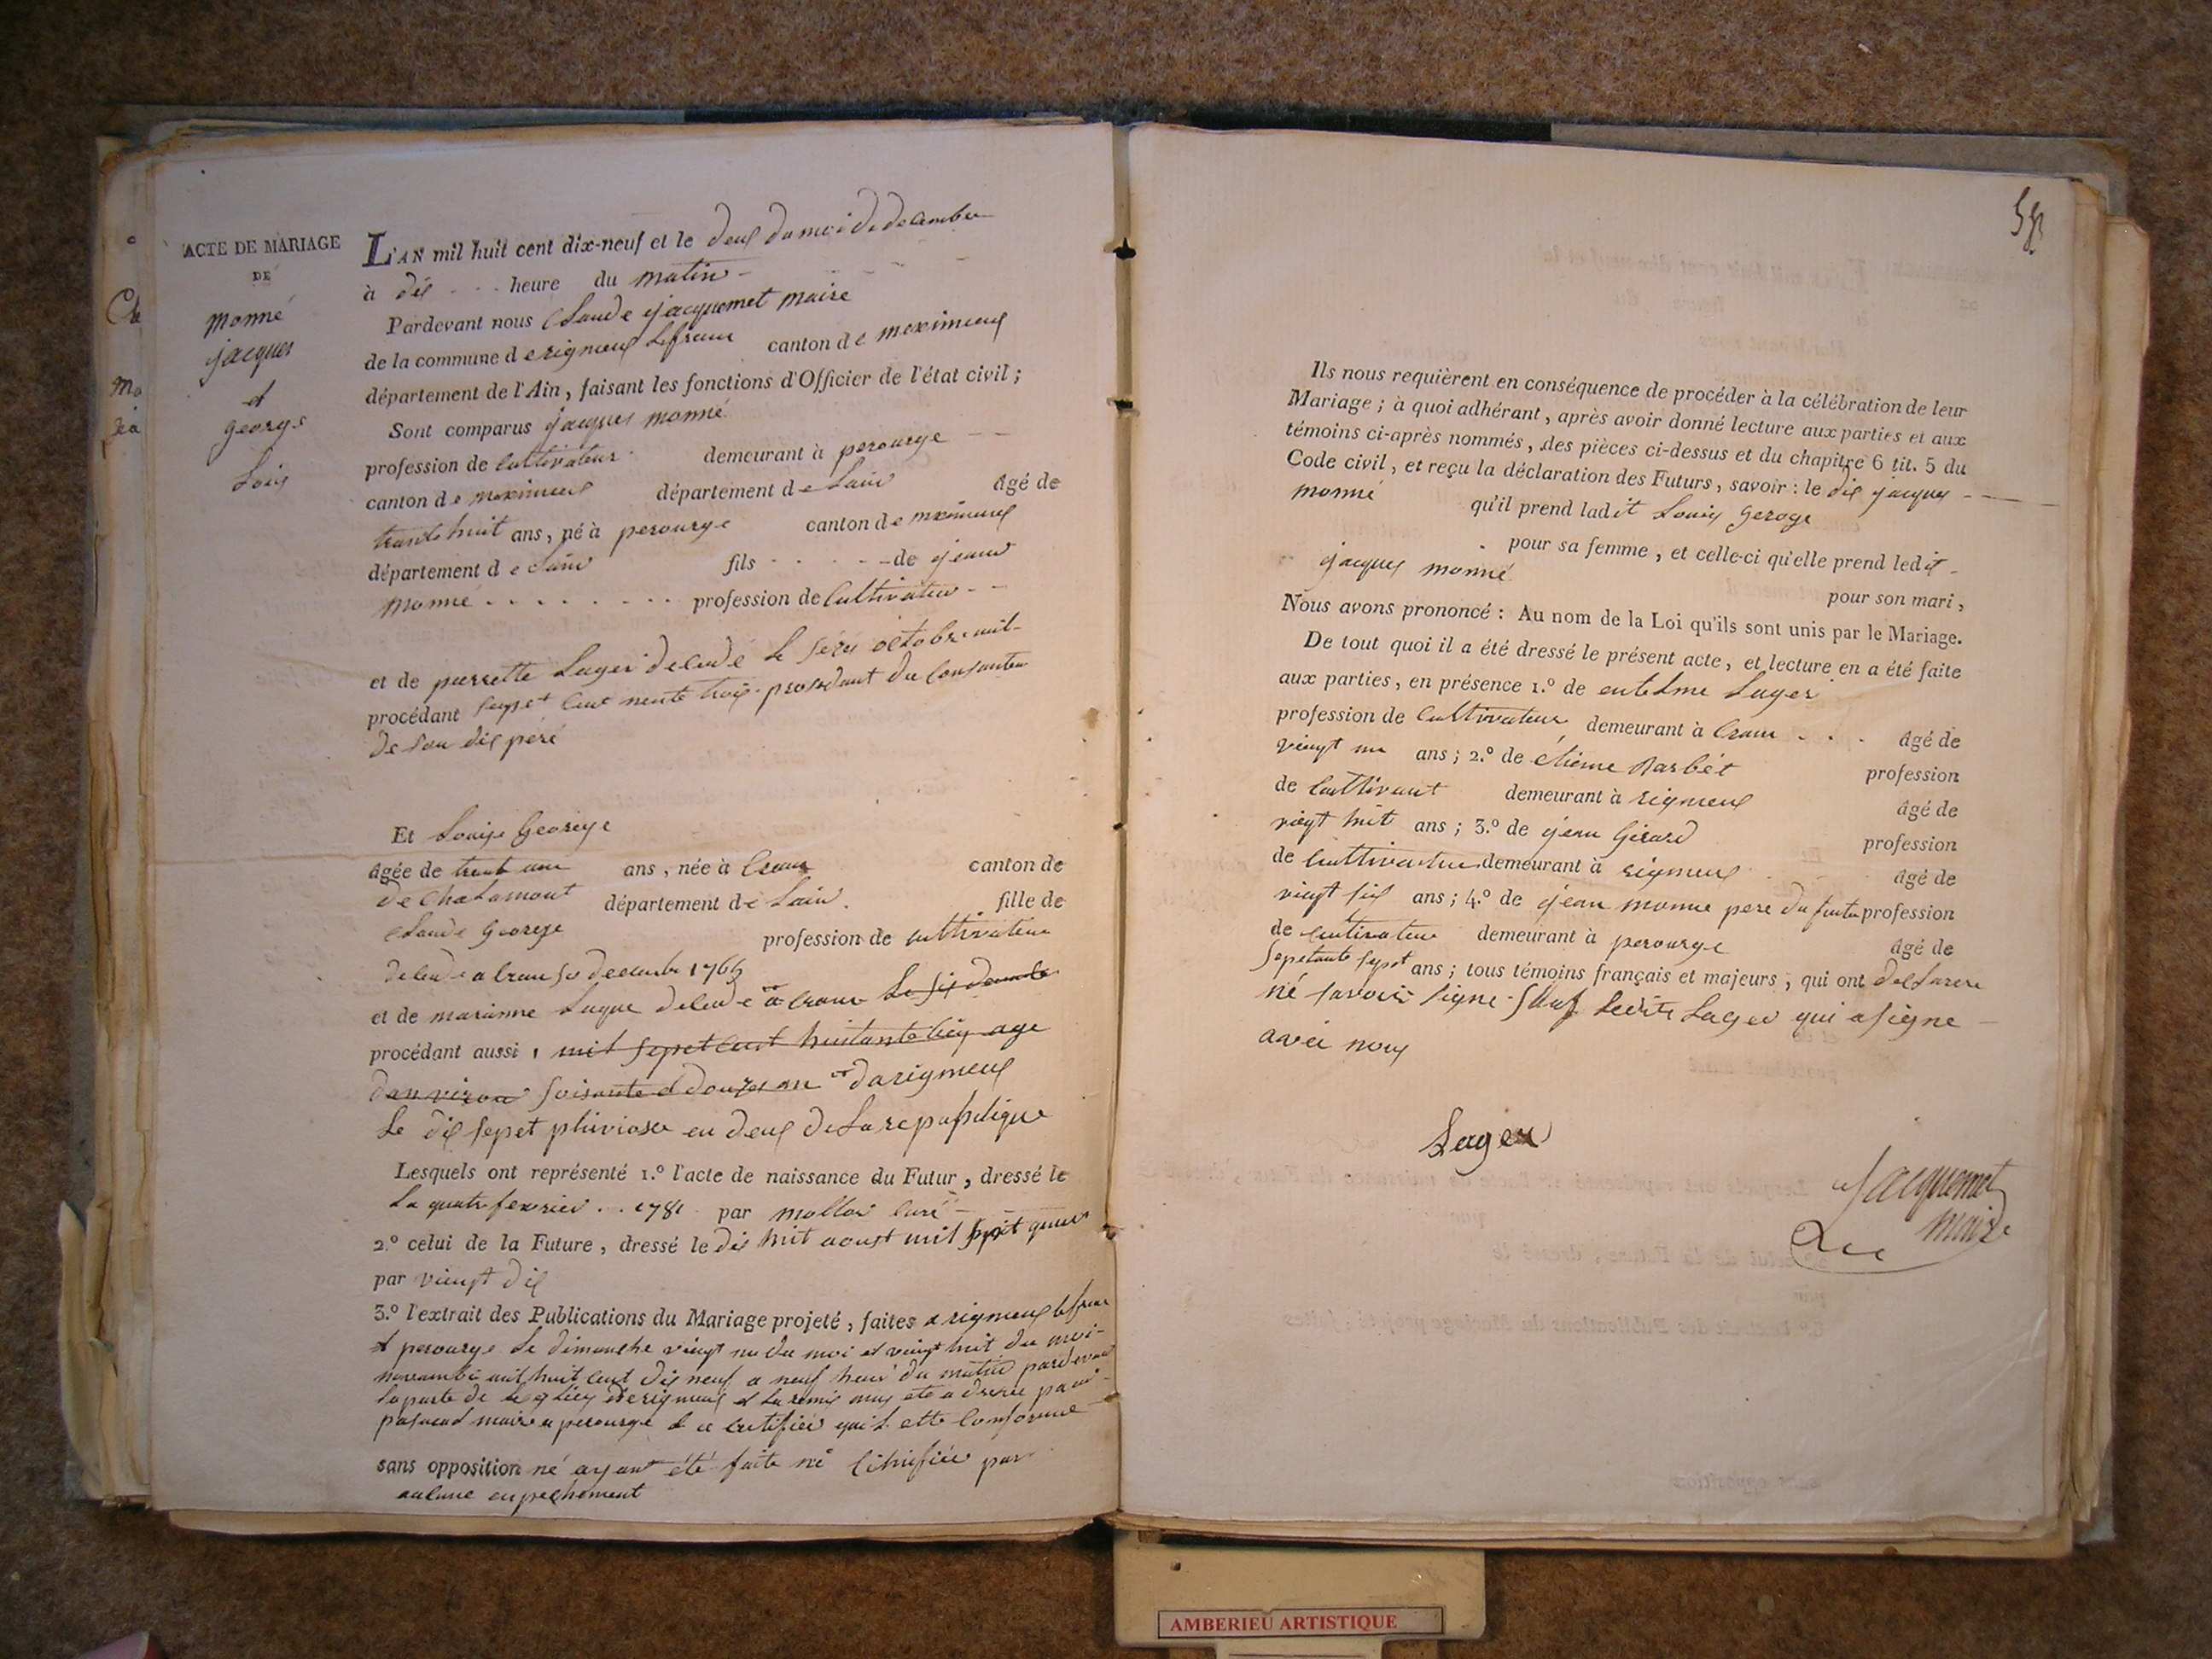 ACTE DE MARIAGE
DE
monné
jacques
et
george
Louis
L'AN mil huit cent dix-neuf et le deux du moi de decembre
à dix heure du matin
Pardevant nous Claude jacquemet maire
de la commune de rigneux lefranc canton de meximieux
département de l'Ain, faisant les fonctions d'Officier de l'état civil ;
Sont comparus jacques monné
profession de cultivateur demeurant à perouge
canton de meximieux département de Lain âgé de
trante huit ans, né à perouge canton de meximieux
département de Lain fils de jean
monné profession de cultivateur
et de pierrette Lager decedé le octobre mil
procédant sepet cent nente trois procedant du
de son dis peré
Et Louise George
âgée de ans, née à Crans canton de
de Chalamont département de Lain fille de
Claude George profession de cultivateur
decedé a Crans decembre
et de marianne decedé a Crans
procédant aussi mil sepet cent huitante age
danviron soisante et douze an a rigneux
Le dix sepet pluviose en deux de La
Lesquels ont représenté 1.º l'acte de naissance du Futur, dressé le
Le quatre fevrier 1781 par curé
2.º celui de la Future, dressé le dix huit aoust mil sepet quatre
par vingt dix
3.º l'extrait des Publications du Mariage projeté, faites a rigneux lefranc
et perouge Le dimanche vingt un du moi et vingt huit du moi
novembre mil huit cent dix neuf a neuf heure du matin pardevant
la porte de rigneux
maire a perouge
sans opposition né ayant été faite ni par
aucune enpechement
58
Ils nous requièrent en conséquence de procéder à la célébration de leur
Mariage ; à quoi adhérant, après avoir donné lecture aux parties et aux
témoins ci-après nommés, des pièces ci-dessus et du chapitre 6 tit. 5 du
Code civil, et reçu la déclaration des Futurs, savoir : le dis jacques
monné qu'il prend ladit Louis George
pour sa femme, et celle-ci qu'elle prend ledit
jacques monné
pour son mari,
Nous avons prononcé : Au nom de la Loi qu'ils sont unis par le Mariage.
De tout quoi il a été dressé le présent acte, et lecture en a été faite
aux parties, en présence 1.º de entelme Lager
profession de Cultivateur demeurant à Crans âgé de
vingt un ans ; 2.º de etienne Barbét profession
de cultivant demeurant à rigneux âgé de
vingt huit ans ; 3.º de jean Girard profession
de cultivateur demeurant à rigneux âgé de
vingt six ans ; 4.º de jean monné pere du futur profession
de cultivateur demeurant à perouge âgé de
Sepetante sepet ans ; tous témoins français et majeurs, qui ont declarere
né savoir signe Lager qui a signe
avec nous
Lager
Jacquemet
maire
AMBERIEU ARTISTIQUE